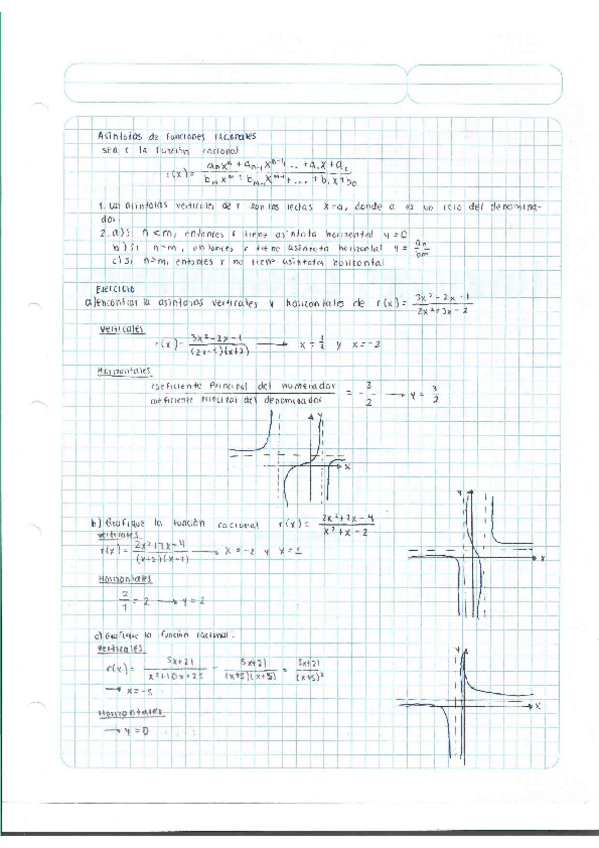 Asintotas de funciones racionales
sea r la función racional
r(x) = (aₙxⁿ + aₙ₋₁xⁿ⁻¹ + ... + a₁x + a₀) / (bₘxᵐ + bₘ₋₁xᵐ⁻¹ + ... + b₁x + b₀)
1. Las asintotas verticales de r son las rectas x=a, donde a es un cero del denomina-
dor
2. a) Si n < m, entonces r tiene asintota horizontal y = 0
b) Si n=m, entonces r tiene asintota horizontal y = aₙ/bₘ
c) Si n>m, entonces r no tiene asintota horizontal
Ejercicio
a) Encontrar la asintotas verticales y horizontales de r(x) = (3x² - 2x - 1) / (2x² + 3x - 2)
Verticales
r(x) = (3x² - 2x - 1) / ((2x - 1)(x + 2)) → x = 1/2 y x = -2
Horizontales
coeficiente principal del numerador / coeficiente principal del denominador = 3/2 → y = 3/2
y
x
b) Grafique la función racional r(x) = (2x² + 7x - 4) / (x² + x - 2)
y
verticales
r(x) = (2x² + 7x - 4) / ((x+2)(x-1)) → x = -2 y x = 1
x
Horizontales
2/1 = 2 → y = 2
c) Grafique la función racional.
verticales
y
r(x) = (5x+21) / (x² + 10x + 25) = (5x+21) / ((x+5)(x+5)) = (5x+21) / (x+5)²
→ x = -5
x
Horizontales
→ y = 0